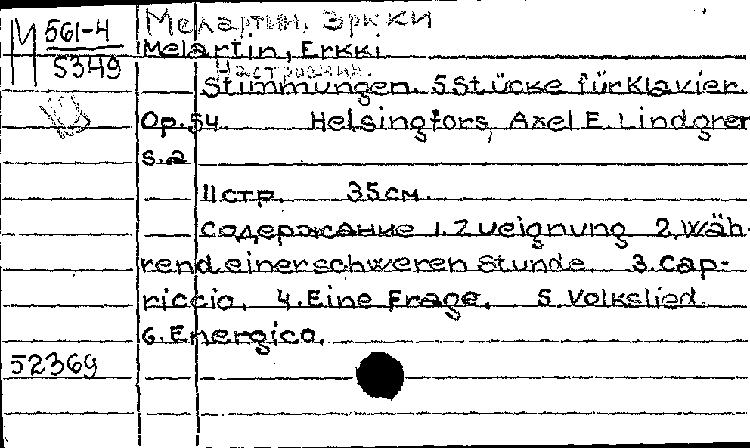 М 561-4
5349
Мелартин, Эркки
Melartin, Erkki
Настроения.
Stimmungen. 5 Stücke für Klavier.
Op. 54. Helsingfors, Axel E. Lindgren
s.a
11 стр. 35 см.
Содержание 1. Zueignung 2. Wäh-
rend einer schweren Stunde. 3. Cap-
riccio. 4. Eine Frage. 5. Volkslied
6. Energico.
52369